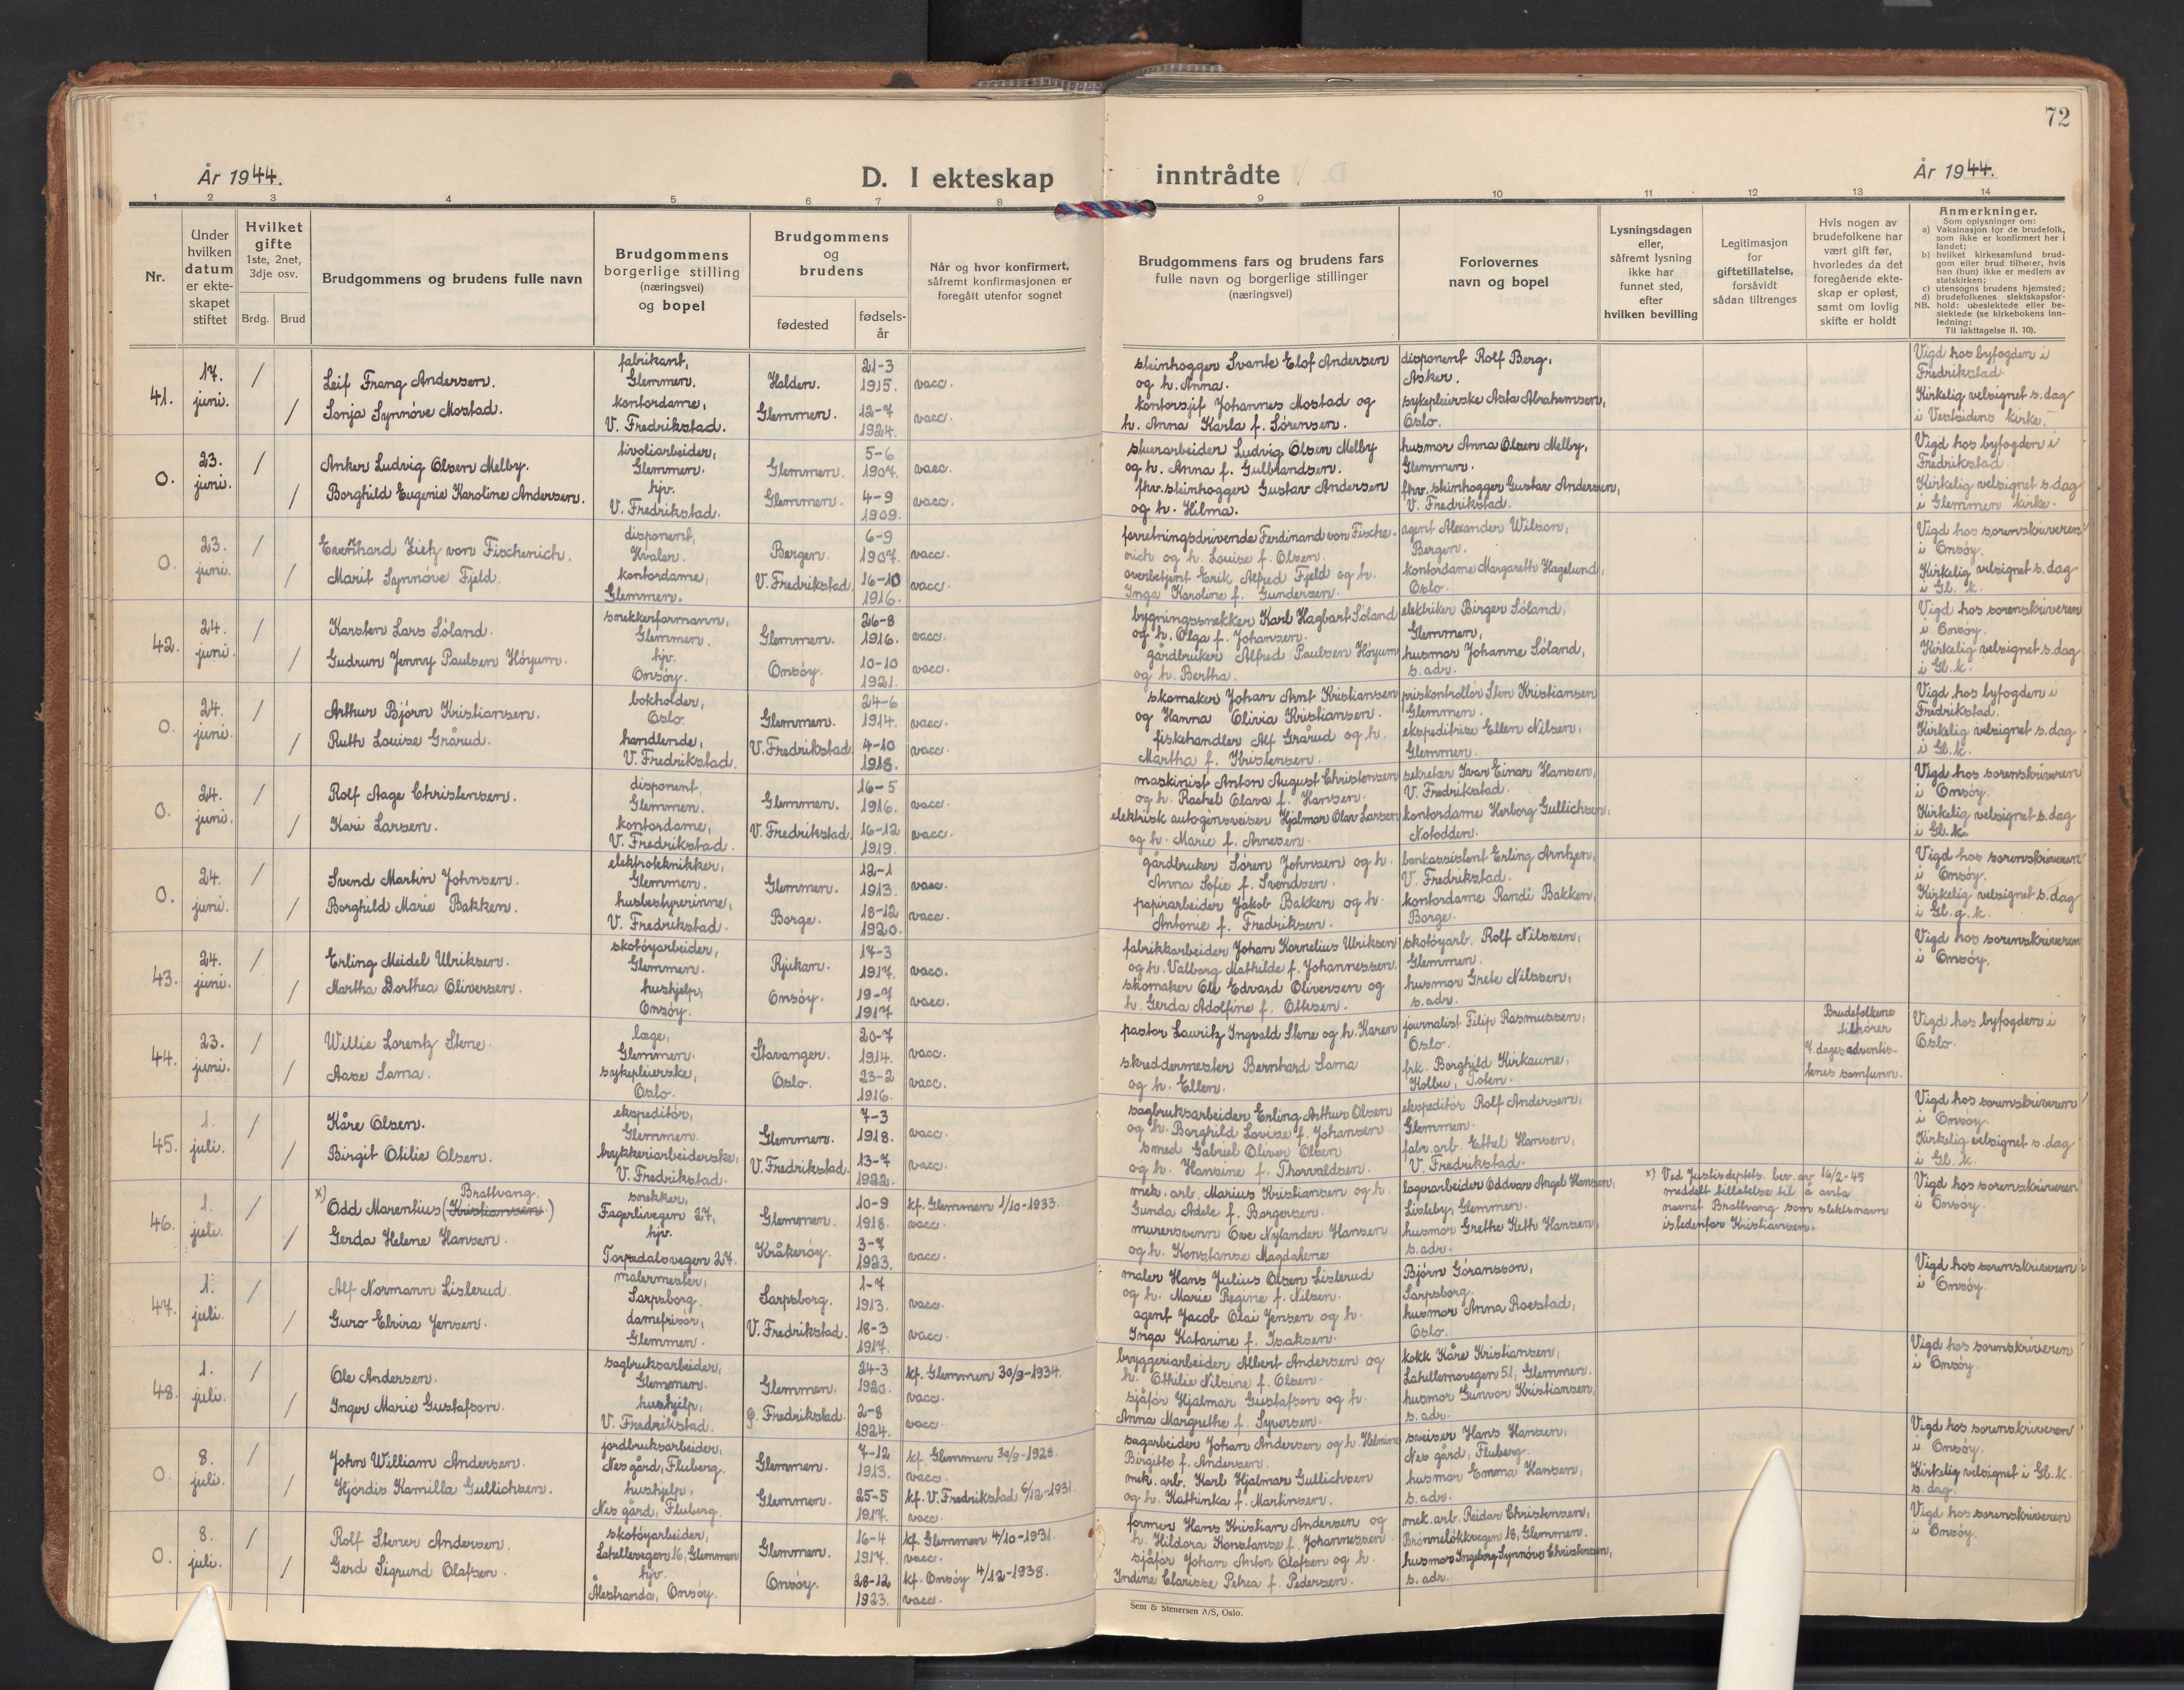 72
År 1944.
D. I ekteskap inntrådte
År 1944.
1 2 3 4 5 6 7 8 9 10 11 12 13 14
Nr.
Under hvilken datum er ekteskapet stiftet
Hvilket gifte
1ste, 2net, 3dje osv.
Brdg. Brud
Brudgommens og brudens fulle navn
Brudgommens borgerlige stilling (næringsvei) og bopel
Brudgommens og brudens
fødested
fødselsår
Når og hvor konfirmert, såfremt konfirmasjonen er foregått utenfor sognet
Brudgommens fars og brudens fars fulle navn og borgerlige stillinger (næringsvei)
Forlovernes navn og bopel
Lysningsdagen eller, såfremt lysning ikke har funnet sted, efter hvilken bevilling
Legitimasjon for giftetillatelse, forsåvidt sådan tiltrenges
Hvis nogen av brudefolkene har vært gift før, hvorledes da det foregående ekteskap er opløst, samt om lovlig skifte er holdt
Anmerkninger.
Som oplysninger om:
a) Vaksinasjon for de brudefolk, som ikke er konfirmert her i landet;
b) hvilket kirkesamfund brudgom eller brud tilhører, hvis han (hun) ikke er medlem av statskirken;
c) utensogns brudens hjemsted;
d) brudefolkenes slektskapsforhold: ubeslektede eller beslektede (se kirkebokens innledning:
NB. Til iakttagelse II. 10).
41. 17. juni. / Leif Frang Andersen. fabrikant, Glemmen. Halden. 21-3 1915. vacc.
/ Sonja Synnöve Mostad. kontordame, V. Fredrikstad. Glemmen. 12-7 1924. vacc.
steinhogger Svante Elof Andersen og h. Anna.
kontorsjef Johannes Mostad og h. Anna Karla f. Sörensen.
disponent Rolf Berg, Asker.
sykepleierske Asta Abrahamsen, Oslo.
Vigd hos byfogden i Fredrikstad.
Kirkelig velsignet s. dag i Vestsidens kirke.
0. 23. juni. / Anker Ludvig Olsen Melby. tivoliarbeider, Glemmen. Glemmen. 5-6 1907. vacc.
/ Borghild Eugenie Karoline Andersen. hjv. V. Fredrikstad. Glemmen. 4-9 1909. vacc.
stuerarbeider Ludvig Olsen Melby og h. Anna f. Gulbrandsen.
fhv. steinhogger Gustav Andersen og h. Hilma.
husmor Anna Olsen Melby, Glemmen.
fhv. steinhogger Gustav Andersen, V. Fredrikstad.
Vigd hos byfogden i Fredrikstad.
Kirkelig velsignet s. dag i Glemmen kirke.
0. 23. juni. / Zietz von Fischenich. disponent, Hvaler. Bergen. 6-9 1907. vacc.
/ Marit Synnöve Fjeld. kontordame, Glemmen. V. Fredrikstad. 16-10 1916. vacc.
forretningsdrivende Ferdinand von Fischenich og h. Louise f. Olsen.
overbetjent Erik Alfred Fjeld og h. Inga Karoline f. Gundersen.
agent Alexander Wilson, Bergen.
kontordame Margareth Hagelund, Oslo.
Vigd hos sorenskriveren i Onsöy.
Kirkelig velsignet s. dag i Gl. k.
42. 24. juni. / Karsten Lars Söland. snekkerformann, Glemmen. Glemmen. 26-8 1916. vacc.
/ Gudrun Jenny Paulsen Höyum. hjv. Onsöy. Onsöy. 10-10 1921. vacc.
bygningssnekker Karl Hagbart Söland og h. Olga f. Johansen.
gårdbruker Alfred Paulsen Höyum og h. Bertha.
elektriker Birger Söland, Glemmen,
husmor Johanne Söland, s. adr.
Vigd hos sorenskriveren i Onsöy.
Kirkelig velsignet s. dag i Gl. k.
0. 24. juni. / Arthur Björn Kristiansen. bokholder, Oslo. Glemmen. 24-6 1914. vacc.
/ Ruth Louise Grårud. handlende, V. Fredrikstad. V. Fredrikstad. 4-10 1918. vacc.
skomaker Johan Arnt Kristiansen og Hanna Olivia Kristiansen.
fiskehandler Alf Grårud og h. Martha f. Kristensen.
priskontrollör Sten Kristiansen Glemmen.
ekspeditrise Ellen Nilsen, Glemmen.
Vigd hos byfogden i Fredrikstad.
Kirkelig velsignet s. dag i Gl. k.
0. 24. juni. / Rolf Aage Christensen. disponent, Glemmen. Glemmen. 16-5 1916. vacc.
/ Kari Larsen. kontordame, V. Fredrikstad. V. Fredrikstad. 16-12 1919. vacc.
maskinist Anton August Christensen og h. Rachel Olava f. Hansen.
elektrisk autogensveiser Hjalmar Olav Larsen og h. Marie f. Arnesen.
sekretær Ivar Einar Hansen, V. Fredrikstad.
kontordame Herborg Gullichsen, Notodden.
Vigd hos sorenskriveren i Onsöy.
Kirkelig velsignet s. dag i Gl. k.
0. 24. juni. / Svend Martin Johnsen. elektroteknikker, Glemmen. Glemmen. 12-1 1913. vacc.
/ Borghild Marie Bakken. husbestyrerinne, V. Fredrikstad. Borge. 18-12 1920. vacc.
gårdbruker Sören Johnsen og h. Anna Sofie f. Svendsen.
papirarbeider Jakob Bakken og h. Antonie f. Fredriksen.
bankassistent Erling Arntzen, V. Fredrikstad.
kontordame Randi Bakken, Borge.
Vigd hos sorenskriveren i Onsöy.
Kirkelig velsignet s. dag i Gl. g. k.
43. 24. juni. / Erling Meidel Ulriksen. skotöyarbeider, Glemmen. Rjukan. 17-3 1917. vacc.
/ Martha Dorthea Oliversen. hushjelp, Onsöy. Onsöy. 19-7 1917 vacc.
fabrikkarbeider Johan Kornelius Ulriksen og h. Valborg Mathilde f. Johannessen.
skomaker Ole Edvard Oliversen og h. Gerda Adolfine f. Ottesen.
skotöyarb. Rolf Nilssen, Glemmen.
husmor Grete Nilssen, s. adr.
Vigd hos sorenskriveren i Onsöy.
44. 23. juni. / Willie Lorentz Stene. læge, Glemmen. Stavanger. 20-7 1914. vacc.
/ Aase Sama. sykepleierske, Oslo. Oslo. 23-2 1916. vacc.
pastor Lauritz Ingvald Stene og h. Karen
skreddermester Bernhard Sama og h. Ellen.
journalist Filip Rasmussen, Oslo.
frk. Borghild Kirkaune, Kolbu, Toten.
Brudefolkene tilhører 7. dages adventistenes samfunn.
Vigd hos byfogden i Oslo.
45. 1. juli. / Kåre Olsen. ekspeditör, Glemmen. Glemmen. 7-3 1918. vacc.
/ Birgit Otilie Olsen. trykkeriarbeiderske, V. Fredrikstad. V. Fredrikstad. 13-7 1922. vacc.
sagbruksarbeider Erling Arthur Olsen og h. Borghild Lovise f. Johansen
smed Gabriel Oliver Olsen og h. Hansine f. Thorvaldsen.
ekspeditör Rolf Andersen, Glemmen.
fabr. arb. Ethel Hansen, V. Fredrikstad.
Vigd hos sorenskriveren i Onsöy.
Kirkelig velsignet s. dag i Gl. k.
46. 1. juli. / x) Odd Marentius (Kristiansen) Brattvang. snekker, Fagerlivegen 27, Glemmen. 10-9 1918. kf. Glemmen 1/10-1933. vacc.
/ Gerda Helene Hansen. hjv. Torpedalsvegen 27. Kråkeröy. 3-7 1923. vacc.
mek. arb. Marius Kristiansen og h. Gunda Adele f. Borgersen.
murersvenn Ove Nylander Hansen og h. Konstanse Magdalene
lagerarbeider Oddvar Angel Hansen, Lisleby, Glemmen.
husmor Grethe Keth Hansen, s. adr.
x) Ved Justisdeptets. bev. av 16/2-45 meddelt tillatelse til å anta navnet Brattvang som slektsnavn istedenfor Kristiansen.
Vigd hos sorenskriveren i Onsöy.
47. 1. juli. / Alf Normann Lislerud. malermester, Sarpsborg. Sarpsborg. 1-7 1913. vacc.
/ Guro Elvira Jensen. damefrisör, Glemmen. V. Fredrikstad. 18-3 1917. vacc.
maler Hans Julius Olsen Lislerud og h. Marie Regine f. Nilsen.
agent Jacob Olai Jensen og h. Inga Katarine f. Isaksen.
Björn Göransson, Sarpsborg.
husmor Anna Roestad, Oslo.
Vigd hos sorenskriveren i Onsöy.
48. 1. juli. / Ole Andersen. sagbruksarbeider, Glemmen. Glemmen. 24-3 1920. kf. Glemmen 30/9-1934. vacc.
/ Inger Marie Gustafson. hushjelp, V. Fredrikstad. g. Fredrikstad. 2-8 1924. vacc.
bryggeriarbeider Albert Andersen og h. Othilie Nilsine f. Olsen.
sjåför Hjalmar Gustafson og h. Anna Margrethe f. Syversen.
kokk Kåre Kristiansen, Lahellemovegen 51, Glemmen.
husmor Gunvor Kristiansen, s. adr.
Vigd hos sorenskriveren i Onsöy.
0. 8. juli. / John William Andersen. jordbruksarbeider, Nes gård, Fluberg. Glemmen. 7-12 1913. kf. Glemmen 30/9-1928. vacc.
/ Hjördis Kamilla Gullichsen. hushjelp, Nes gård, Fluberg. Glemmen. 25-5 1917. kf. V. Fredrikstad 6/12-1931. vacc.
sagarbeider Johan Andersen og h. Helmine Birgitte f. Andersen.
mek. arb. Karl Hjalmar Gullichsen og h. Kathinka f. Martinsen.
sveiser Hans Hansen, Nes gård, Fluberg.
husmor Emma Hansen, s. adr.
Vigd hos sorenskriveren i Onsöy.
Kirkelig velsignet i Gl. k. s. dag.
0. 8. juli. / Rolf Stener Andersen. skotöyarbeider, Lahellevegen 16, Glemmen Glemmen. 16-4 1917. kf. Glemmen 4/10-1931. vacc.
/ Gerd Sigrund Olafsen. hjv. Ålestranda, Onsöy. Onsöy. 28-12 1923. kf. Onsöy 4/12-1938. vacc.
former Hans Kristian Andersen og h. Hildora Konstanse f. Johannessen.
sjåför Johan Anton Olafsen og h. Indine Clarisse Petrea f. Pedersen.
mek. arb. Reidar Christensen, Brönnelökkvegen 18, Glemmen.
husmor Ingeborg Synnöve Christensen, s. adr.
Vigd hos sorenskriveren i Onsöy.
Sem & Stenersen A/S, Oslo.